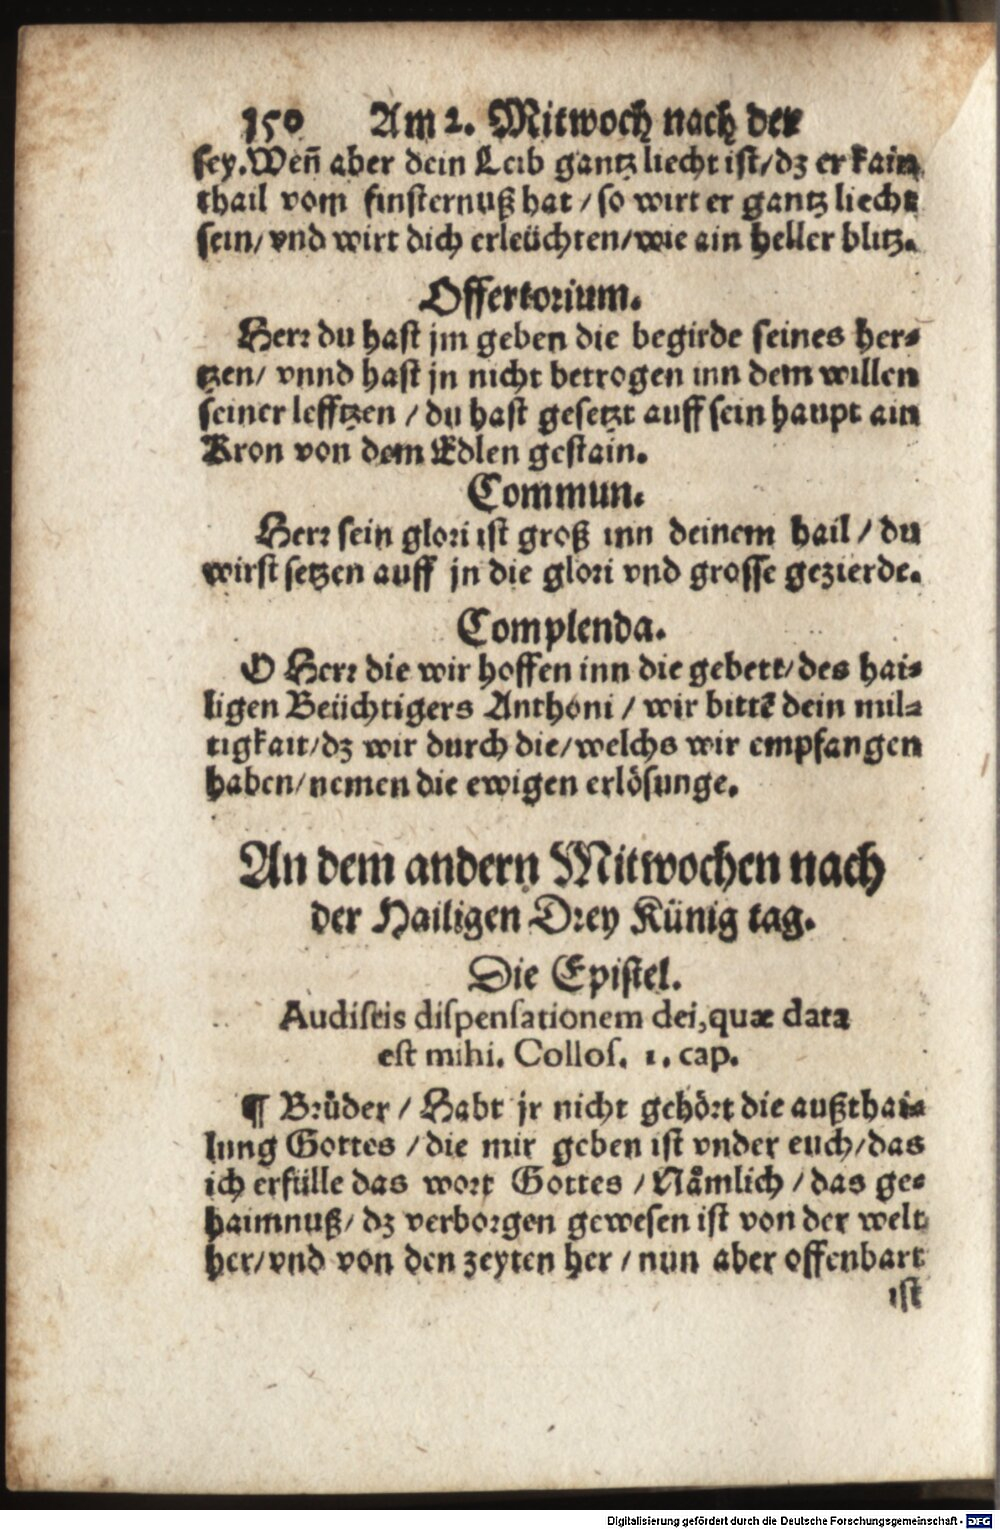 150 Am 2. Mitwoch nach der
sey. Weñ aber dein Leib gantz liecht ist/dz er kain
thail vom finsternuß hat / so wirt er gantz liecht
sein/ vnd wirt dich erleüchten/wie ain heller blitz.
Offertorium.
Herr du hast jm geben die begirde seines her-
tzen/ vnnd hast jn nicht betrogen inn dem willen
seiner lefftzen / du hast gesetzt auff sein haupt ain
Kron von dem Edlen gestain.
Commun.
Herr sein glori ist groß inn deinem hail / du
wirst setzen auff jn die glori vnd grosse gezierde.
Complenda.
O Herr die wir hoffen inn die gebett/des hai-
ligen Beüchtigers Anthoni / wir bittē dein mil-
tigkait/dz wir durch die/welchs wir empfangen
haben/nemen die ewigen erlösunge.
An dem andern Mitwochen nach
der Hailigen Drey Künig tag.
Die Epistel.
Audistis dispensationem dei, quæ data
est mihi. Collos. 1. cap.
¶ Brůder / Habt jr nicht gehört die außthai-
lung Gottes / die mir geben ist vnder euch/das
ich erfülle das wort Gottes / Nåmlich / das ge-
haimnuß/ dz verborgen gewesen ist von der welt
her/vnd von den zeyten her / nun aber offenbart
ist
Digitalisierung gefördert durch die Deutsche Forschungsgemeinschaft - DFG